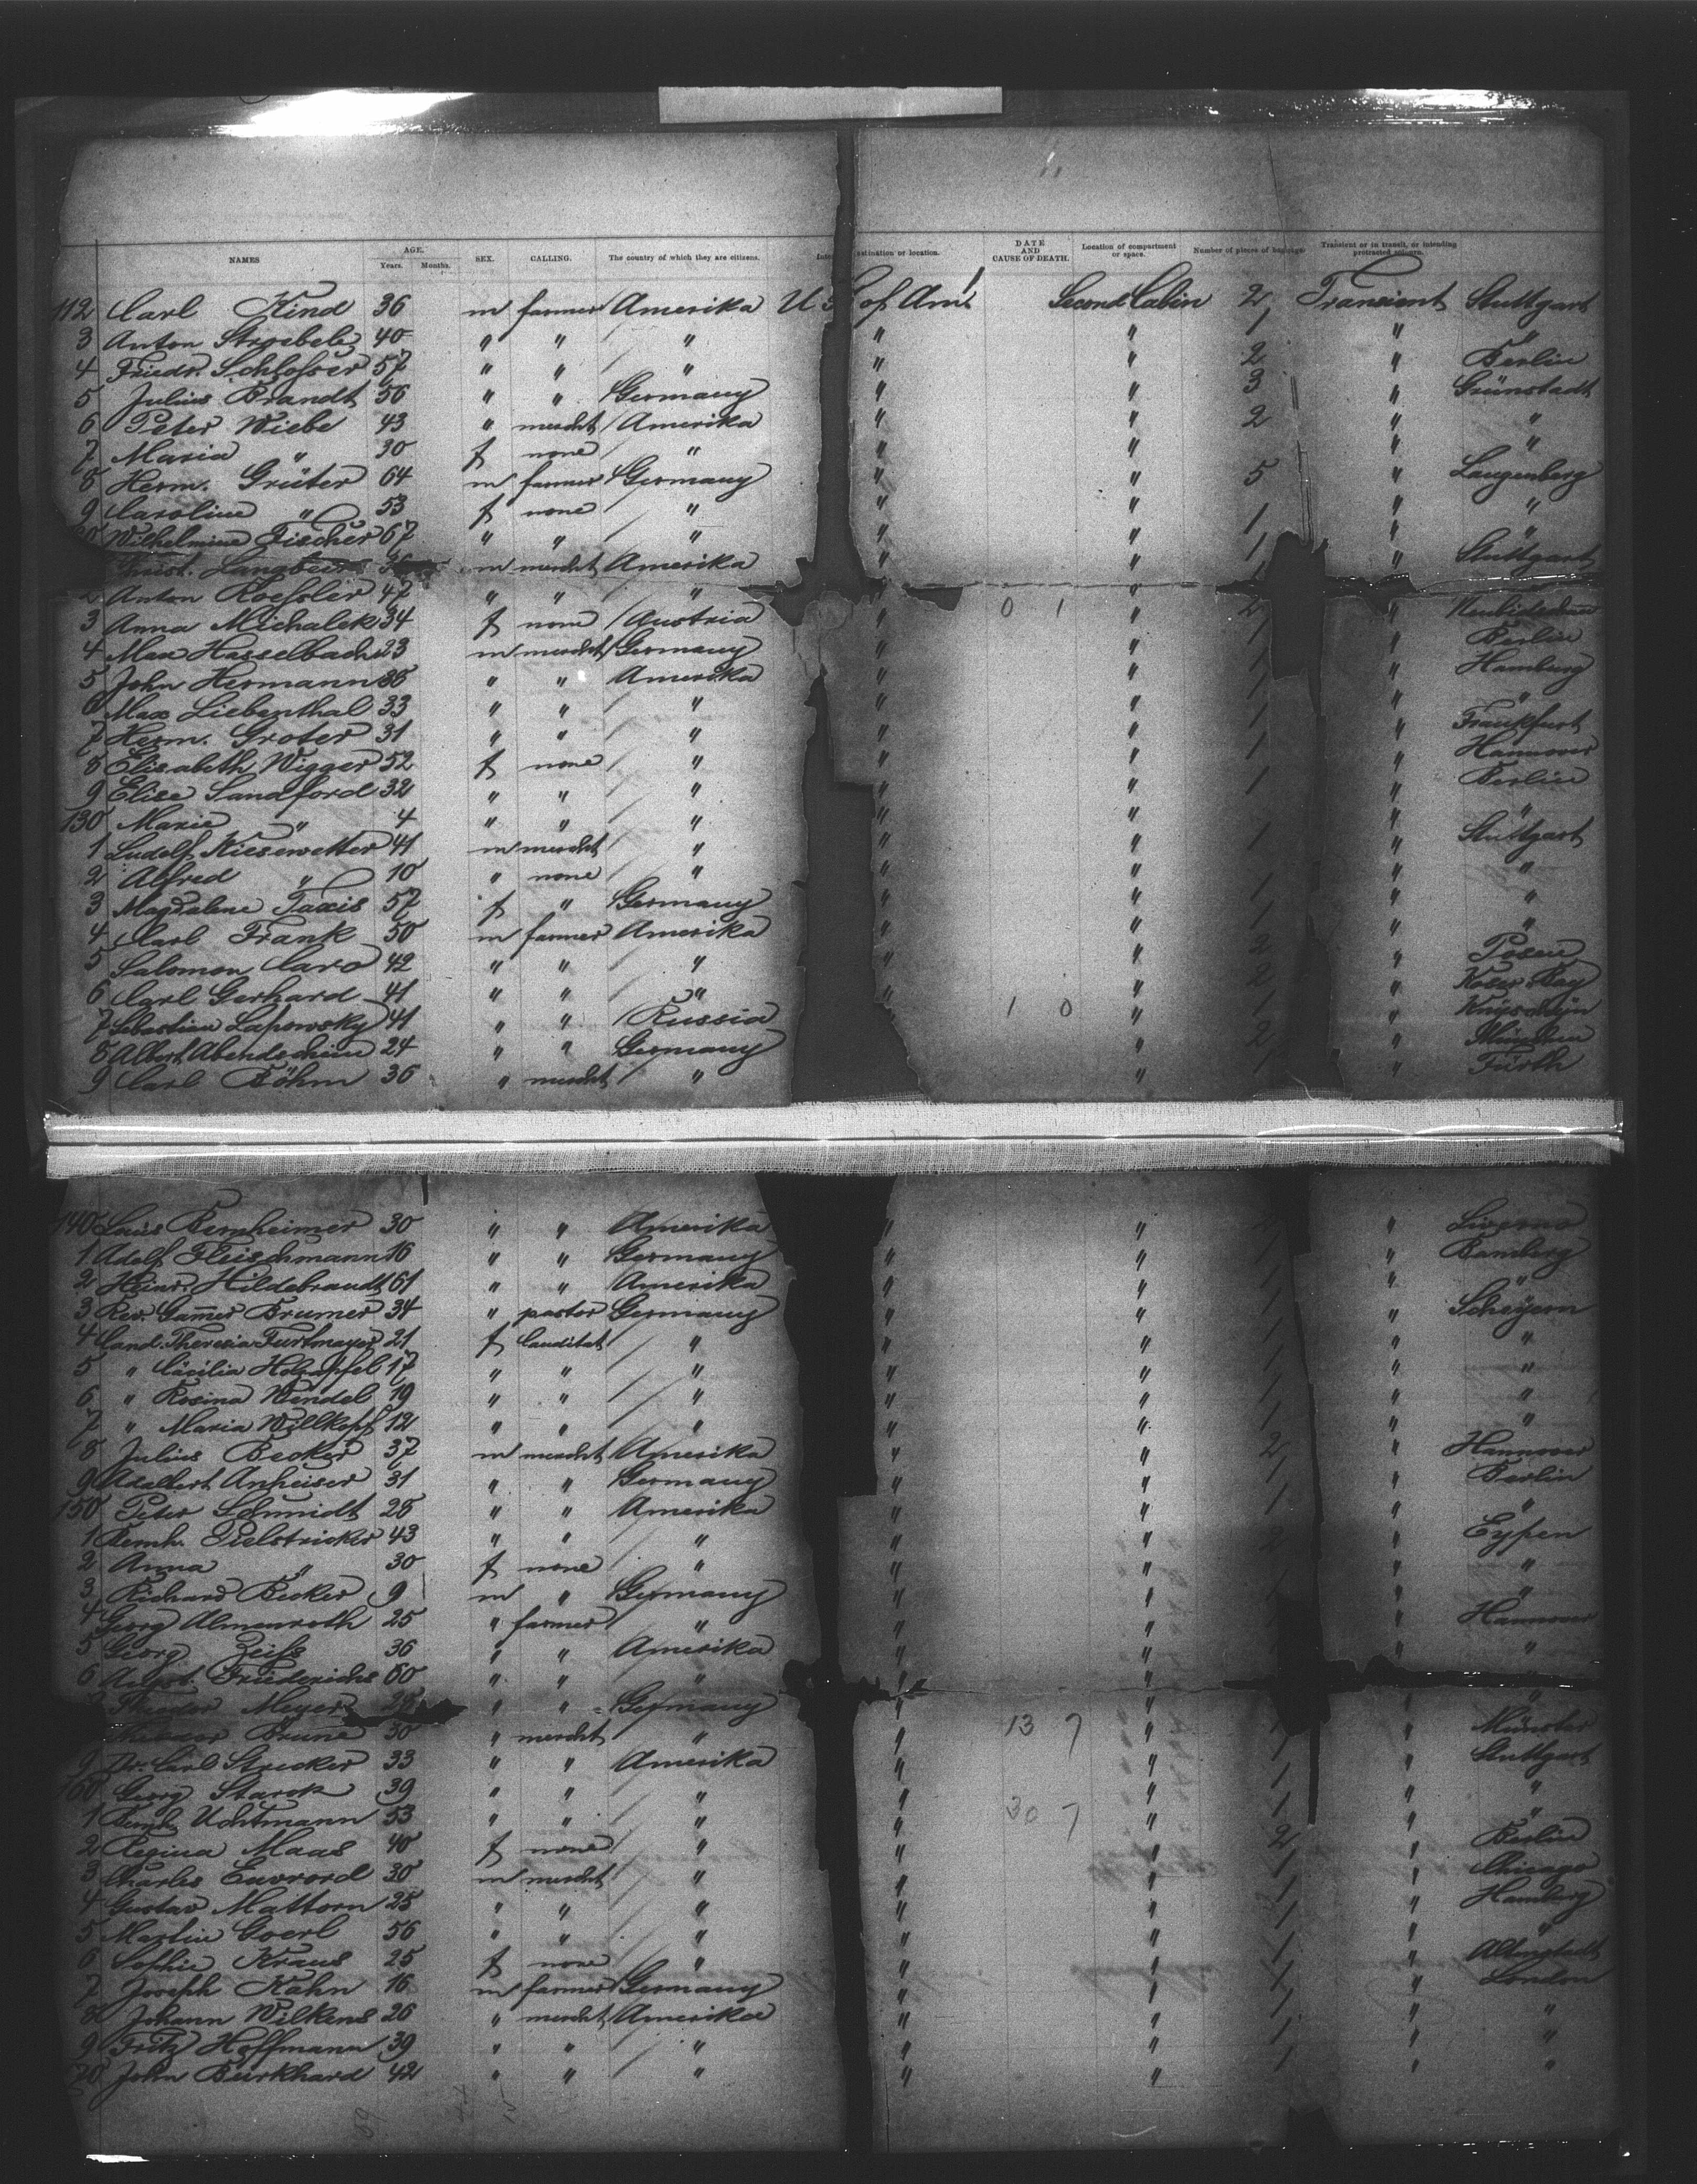 NAMES AGE. Years. Months. SEX. CALLING. The country of which they are citizens. stination or location. DATE AND CAUSE OF DEATH. Location of compartment or space. Number of pieces of baggage. Transient or in transit, or intending protracted sojourn.
112 Carl Kind 36 m farmer Amerika U S of Am. Second Cabin 2 Transient Stuttgart
3 Anton Stroebele 40 " " " " " 1 " "
4 Friedr. Schlosser 57 " " " " " 2 " Berlin
5 Julius Brandt 56 " " Germany " " 3 " Grünstadt
6 Peter Wiebe 43 " mercht Amerika " " 2 " "
7 Maria " 30 f none " " " " "
8 Herm. Grüter 64 m farmer Germany " " 5 " Langenberg
9 Caroline " 53 f none " " " " "
Wilhelmine Fischer 67 " " " " " 1 " "
Langbein m mercht Amerika " " 1 " Stuttgart
2 Anton Roessler 47 " " " " "
3 Anna Michalek 34 f none Austria " 0 1 " 2 "
4 Max Hasselbach 23 m mercht Germany " " 1 " Berlin
5 John Hermann 38 " " Amerika " " 1 " Hamburg
6 Max Liebenthal 33 " " " " " 1 " "
7 Herm. Groter 31 " " " " " 1 " Frankfurt
8 Elisabeth Wigger 52 f none " " " 1 " Hannover
9 Elise Sandford 32 " " " " " 1 " Berlin
130 Marie " 4 " " " " " " "
1 Ludolf Kiesewetter 41 m mercht " " " 1 " Stuttgart
2 Alfred " 10 " none " " " " "
3 Magdalene Taxis 57 f " Germany " " 1 " "
4 Carl Frank 50 m farmer Amerika " " 1 " "
5 Salomon Caro 42 " " " " " 2 " Posen
6 Carl Gerhard 41 " " " " " 2 "
7 Sebastian Lapowsky 41 " " Russia " 1 0 " 1 "
8 Albert Abendschein 24 " " Germany " " 2 " München
9 Carl Böhm 36 " mercht " " " 1 " Fürth
140 Louis Bernheimer 30 " " Amerika " " " Livorno
1 Adolf Fleischmann 16 " " Germany " " 1 " Bamberg
2 Heinr. Hildebrandt 61 " " Amerika " " 1 " "
3 Rev. Brumer 34 " pastor Germany " " 1 " Scheyern
4 Cand. Theresia Furtmayer 21 f Canditat " " " 1 " "
5 " Cäcilia Holzapfel 17 " " " " " 1 " "
6 " Rosina Wendel 19 " " " " " 1 " "
7 " Maria Willkopf 12 " " " " " 1 " "
8 Julius Becker 37 m mercht Amerika " " 2 " Hannover
9 Adalbert Anheiser 31 " " Germany " " 1 " Berlin
150 Peter Schmidt 28 " " Amerika " " 1 " "
1 Bernh. Pielstricker 43 " " " " " 2 " Eypen
2 Anna " 30 f none " " " " "
3 Richard Becker 9 m " Germany " " 1 " "
4 Georg Almenroth 25 " farmer " " " " Hannover
5 Georg Zeiss 36 " " Amerika " " " "
6 August Friederichs 60 " " " " " "
Theodor Meyer 28 " " Germany " " " "
Brune 30 " mercht " " 13 7 " 1 " Münster
9 Dr. Carl Strecker 33 " " Amerika " " 1 " Stuttgart
160 Georg Starck 39 " " " " " 1 " "
1 Bernh. Uchtmann 53 " " " " 30 7 " 1 " "
2 Regina Maas 40 f none " " " 2 " Berlin
3 Charles Euvrord 30 m mercht " " " 1 " Chicago
4 Gustav Mattorn 25 " " " " " 1 " Hamburg
5 Martin Goerl 56 " " " " " 1 " "
6 Sophie Kraus 25 f none " " " 1 " Altenstadt
7 Joseph Kahn 16 m farmer Germany " " 1 " London
8 Johann Wilkens 26 " mercht Amerika " " 1 " "
9 Fritz Hoffmann 39 " " " " " 1 " "
70 John Burkhard 42 " " " " " 1 " "